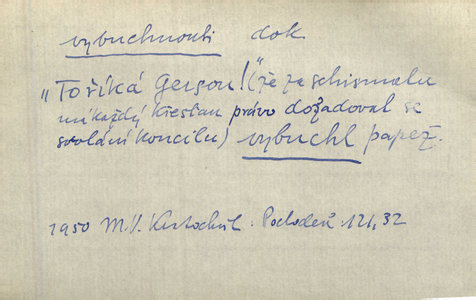 vybuchnouti dok
„To říká Gerson!“ (že za schismatu
má každý křesťan právo dožadovat se
svolání koncilu) vybuchl papež.
1950 M.V. Kratochvíl. Pochodeň 121, 32